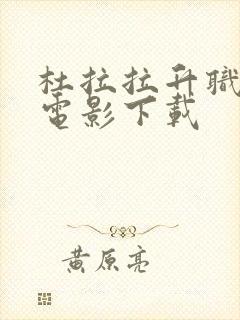 杜拉拉升職
電影下載
黄原亮